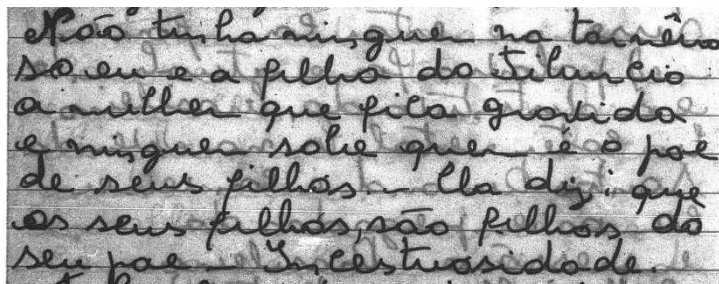 Não tinha ninguen na tornêra
so eu e a filha do Silancio
a mulher que fica gravida
e ninguen sabe quen é o pae
de seus filhos. – Ela diz: que
os seus filhos, são filhos do
seu pae – Incestuosidade.